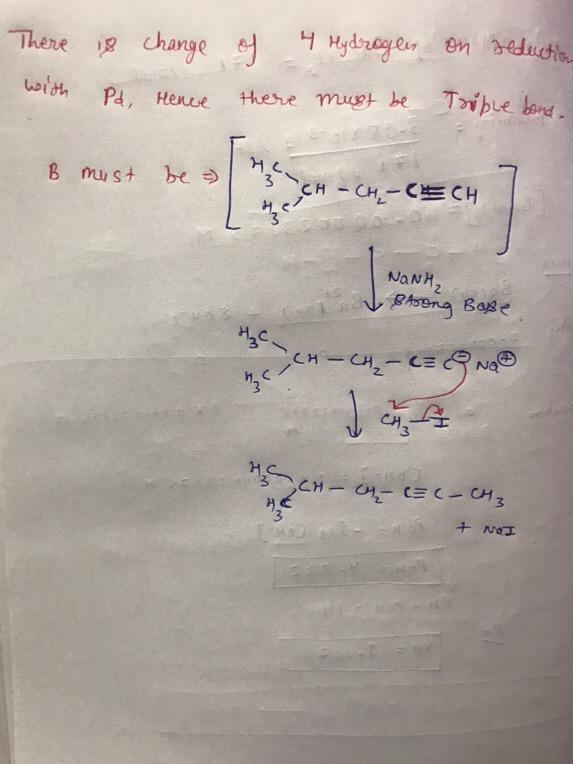 There is change of 4 Hydrogen on reduction
with Pd, Hence there must be Triple bond.
B must be ⇒ [ H3C H3C CH - CH2 - C≡CH ]
NaNH2
Strong Base
H3C
CH - CH2 - C≡C⊖ Na⊕
H3C
CH3 - I
H3C
CH - CH2 - C≡C - CH3
H3C
+ NaI